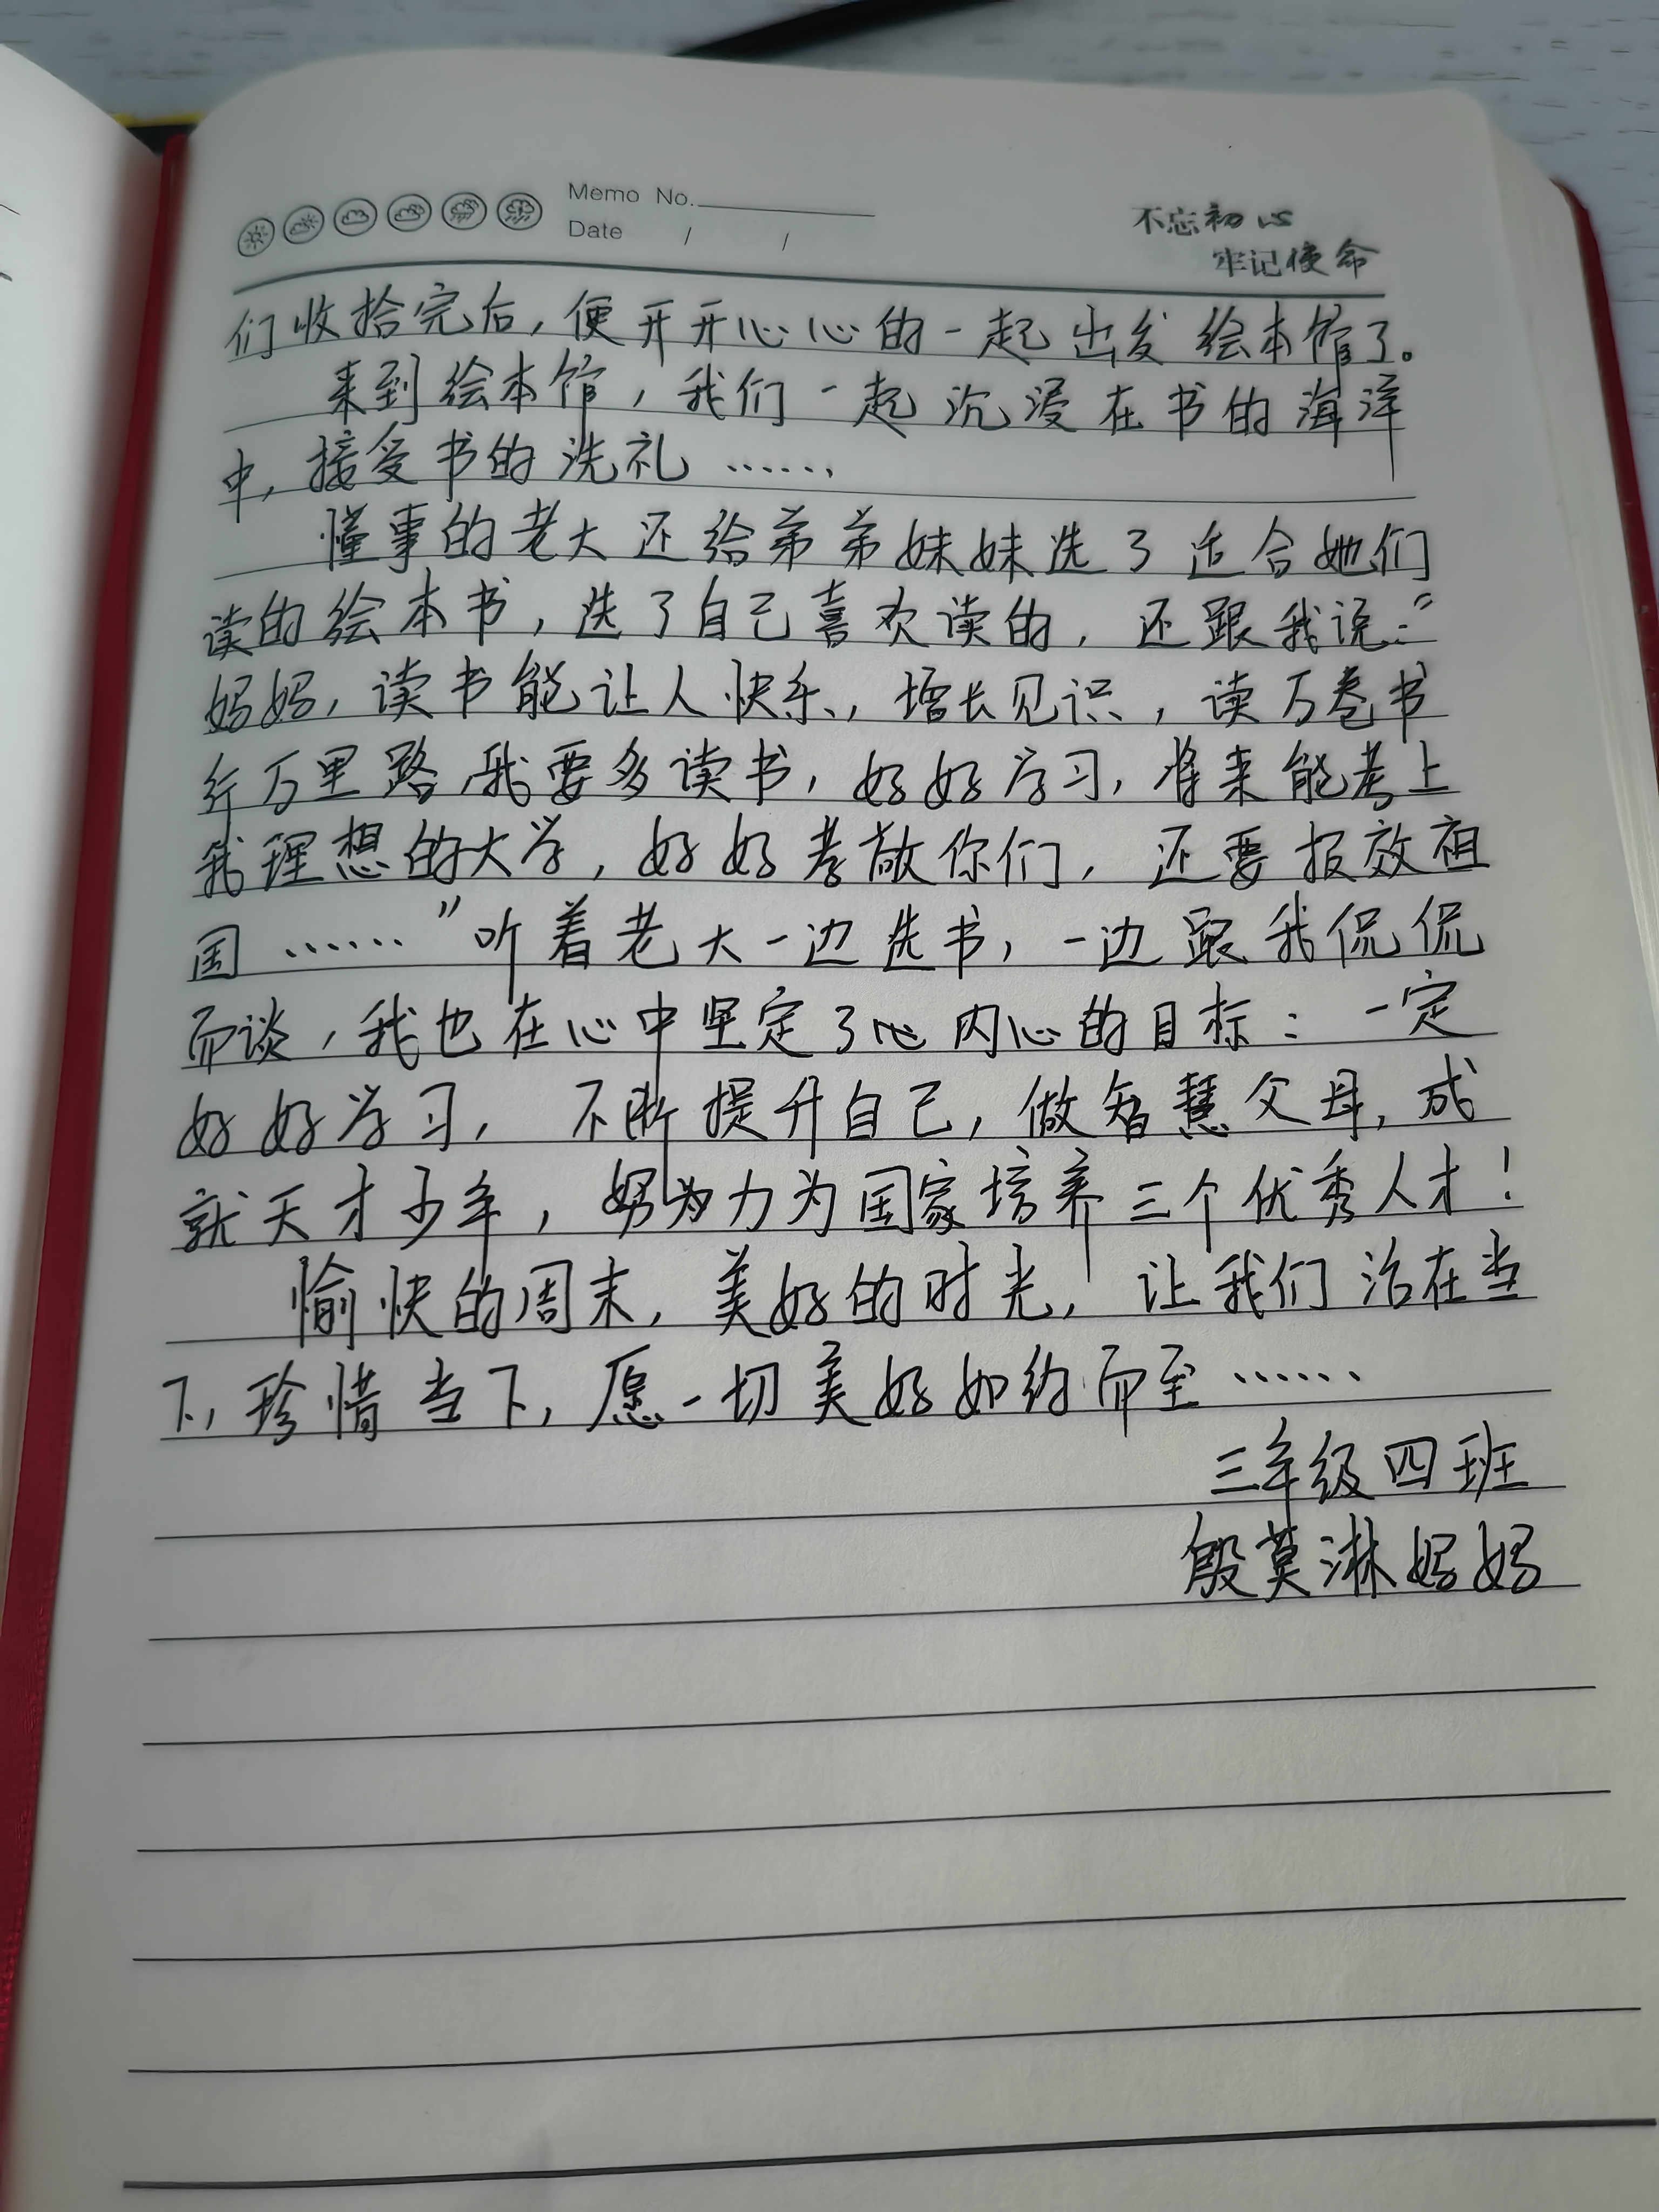 Memo No.
Date / /
不忘初心
牢记使命
们收拾完后，便开开心心的一起出发绘本馆了。
来到绘本馆，我们一起沉浸在书的海洋
中，接受书的洗礼……，
懂事的老大还给弟弟妹妹选了适合她们
读的绘本书，选了自己喜欢读的，还跟我说：“
妈妈，读书能让人快乐，增长见识，读万卷书
行万里路，我要多读书，好好学习，将来能考上
我理想的大学，好好孝敬你们，还要报效祖
国……”听着老大一边选书，一边跟我侃侃
而谈，我也在心中坚定了内心的目标：一定
好好学习，不断提升自己，做智慧父母，成
就天才少年，努力为国家培养三个优秀人才！
愉快的周末，美好的时光，让我们活在当
下，珍惜当下，愿一切美好如约而至……
三年级四班
殷莫淋妈妈